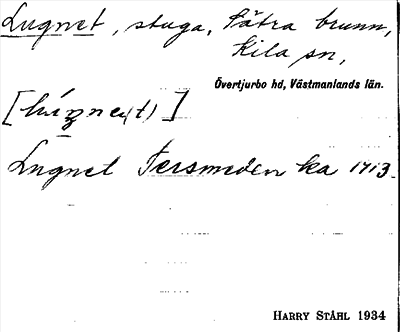 Lugnet, stuga, Sätra brunn,
Kila sn,
Övertjurbo hd, Västmanlands län.
Lugnet Tersmeden ka 1713.
HARRY STÅHL 1934